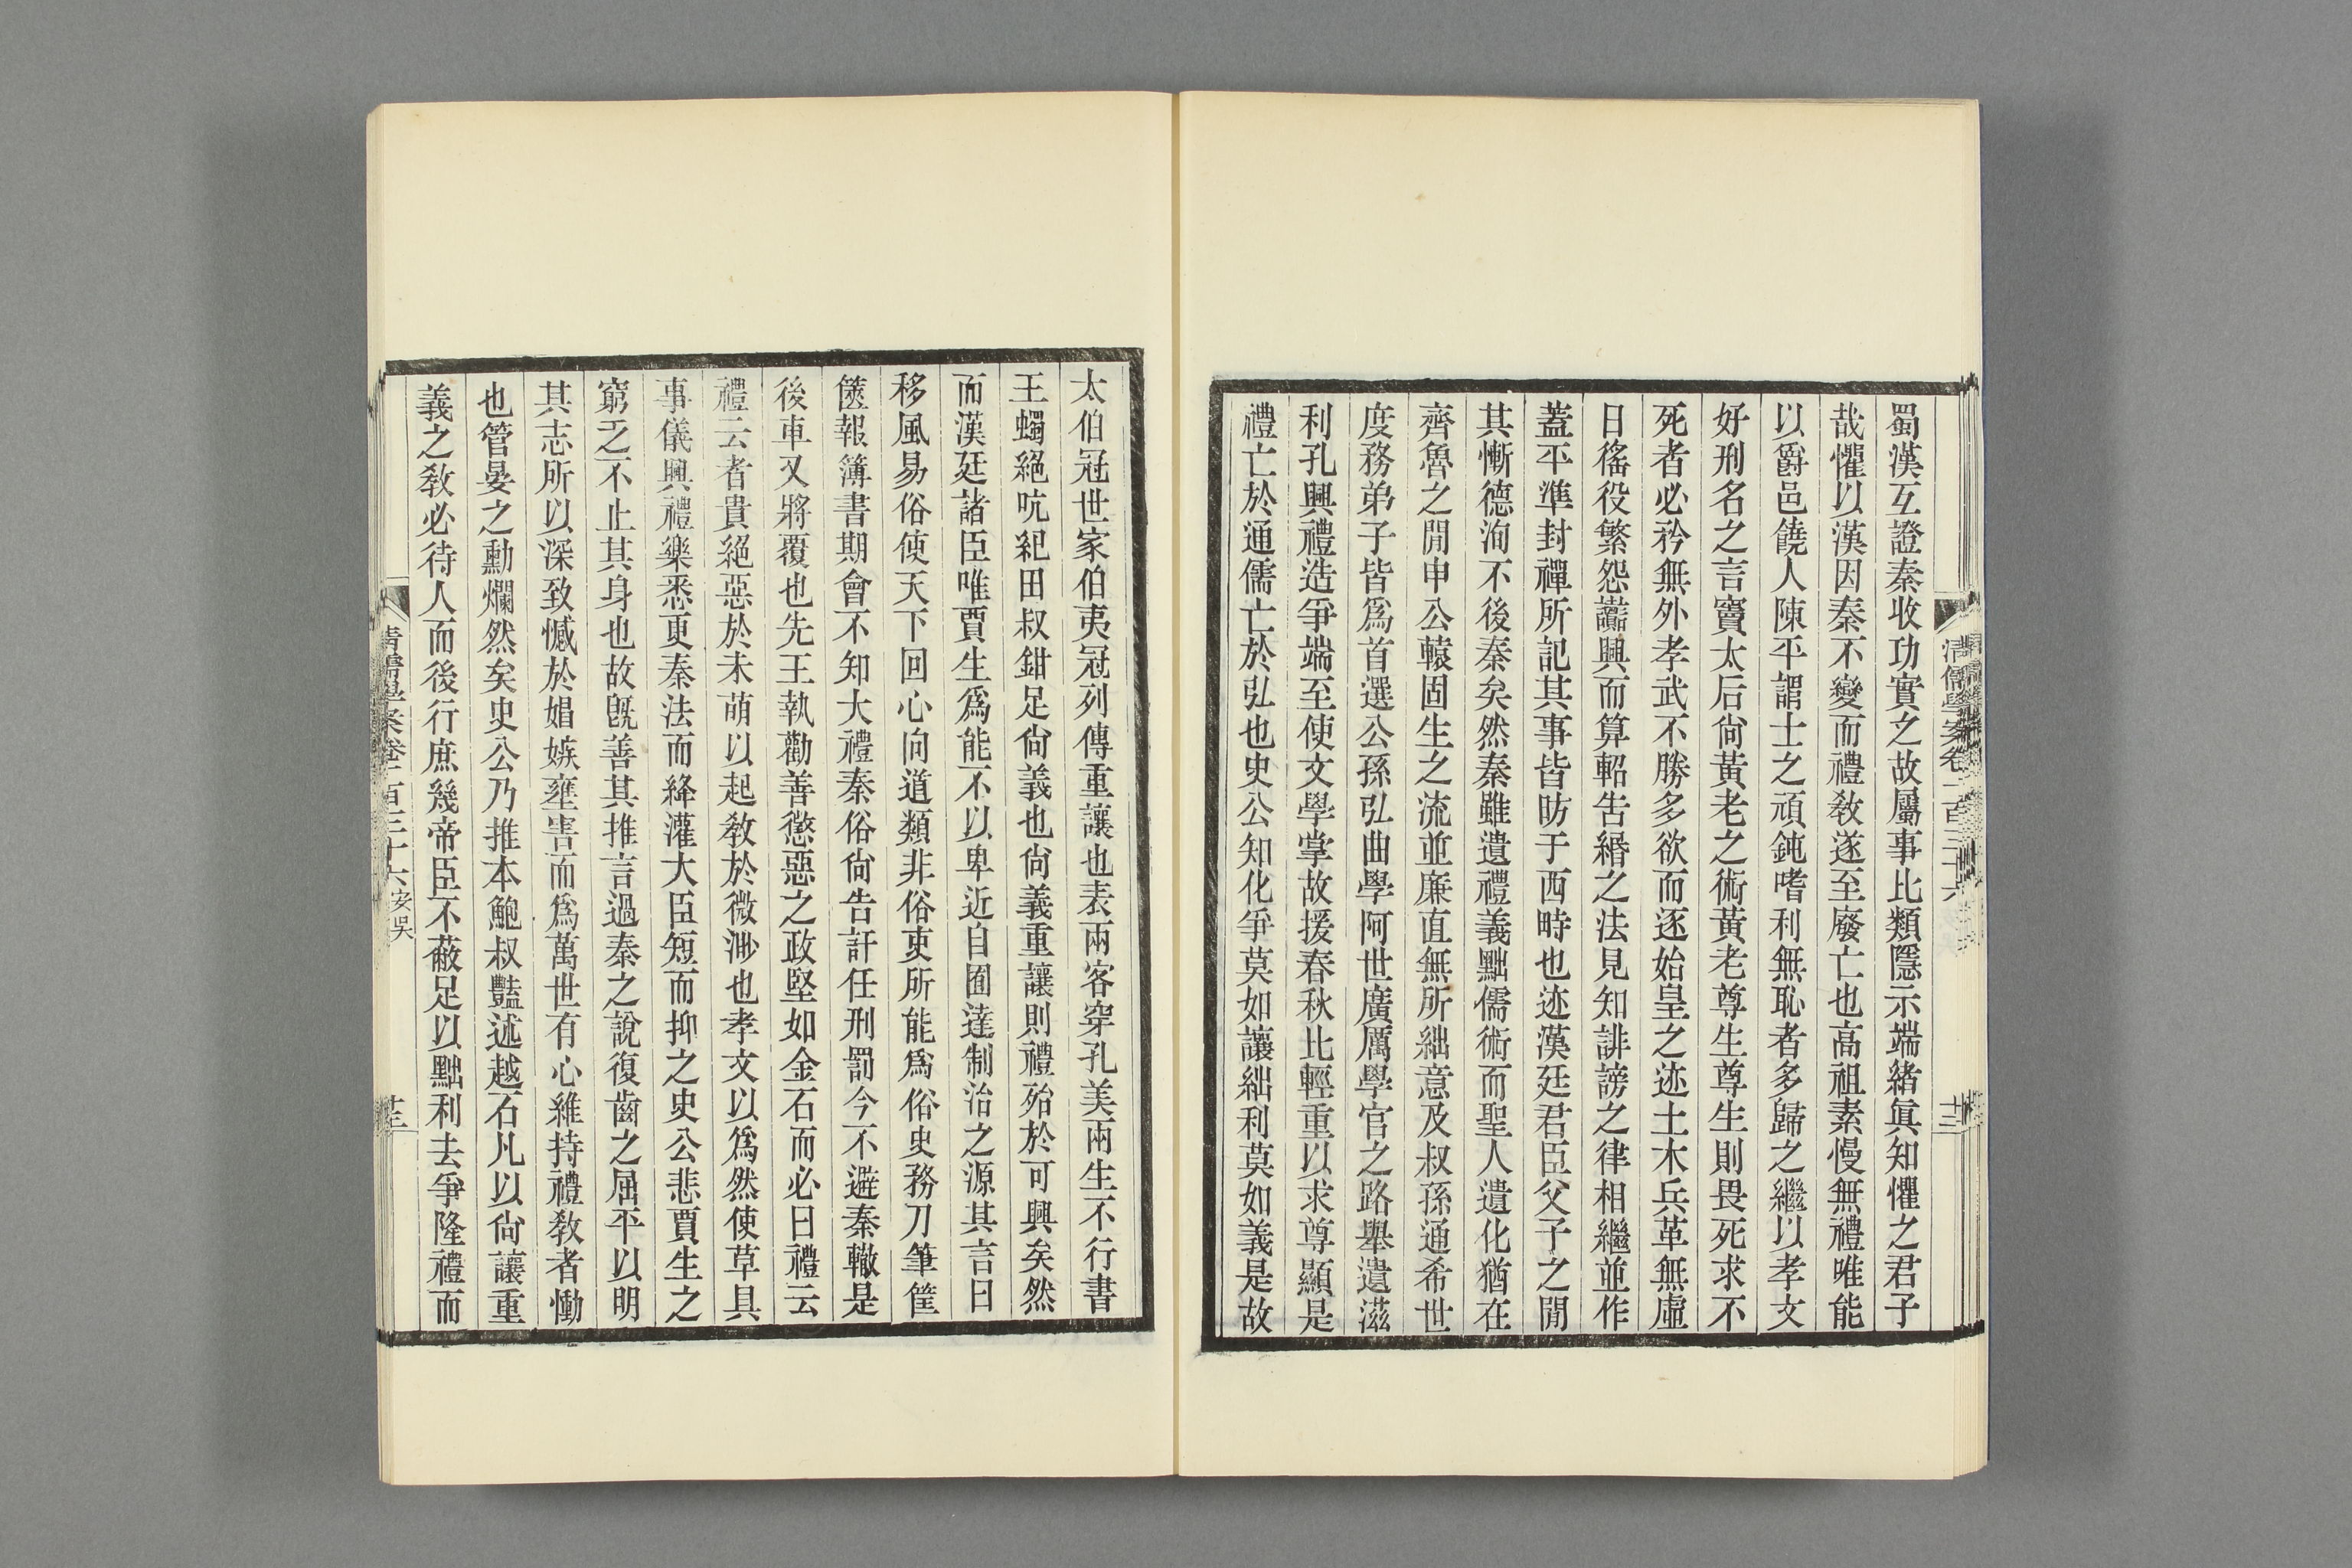 蜀漢互證秦收功實之故屬事比類隱示端緒眞知懼之君子
哉懼以漢因秦不變而禮敎遂至廢亡也高祖素慢無禮唯能
以爵邑饒人陳平謂士之頑鈍嗜利無恥者多歸之繼以孝文
好刑名之言竇太后尙黃老之術黃老尊生尊生則畏死求不
死者必矜無外孝武不勝多欲而逐始皇之迹土木兵革無虛
日徭役繁怨讟興而算軺告緡之法見知誹謗之律相繼並作
蓋平準封禪所記其事皆昉于西畤也迹漢廷君臣父子之閒
其慚德洵不後秦矣然秦雖遺禮義黜儒術而聖人遺化猶在
齊魯之閒申公轅固生之流並廉直無所絀意及叔孫通希世
度務弟子皆爲首選公孫弘曲學阿世廣厲學官之路舉遺滋
利孔興禮造爭端至使文學掌故援春秋比輕重以求尊顯是
禮亡於通儒亡於弘也史公知化爭莫如讓絀利莫如義是故
淸儒學案卷一百三十六
十三
太伯冠世家伯夷冠列傳重讓也表兩客穿孔美兩生不行書
王蠋絕吭紀田叔鉗足尙義也尙義重讓則禮殆於可興矣然
而漢廷諸臣唯賈生爲能不以卑近自囿達制治之源其言曰
移風易俗使天下回心向道類非俗吏所能爲俗吏務刀筆筐
篋報簿書期會不知大禮秦俗尙告訐任刑罰今不避秦轍是
後車又將覆也先王執勸善懲惡之政堅如金石而必曰禮云
禮云者貴絕惡於未萌以起敎於微渺也孝文以爲然使草具
事儀興禮樂悉更秦法而絳灌大臣短而抑之史公悲賈生之
窮乏不止其身也故旣善其推言過秦之說復齒之屈平以明
其志所以深致憾於娼嫉壅害而爲萬世有心維持禮敎者慟
也管晏之勳爛然矣史公乃推本鮑叔豔述越石凡以尙讓重
義之敎必待人而後行庶幾帝臣不蔽足以黜利去爭隆禮而
淸儒學案卷一百三十六安吳
十三